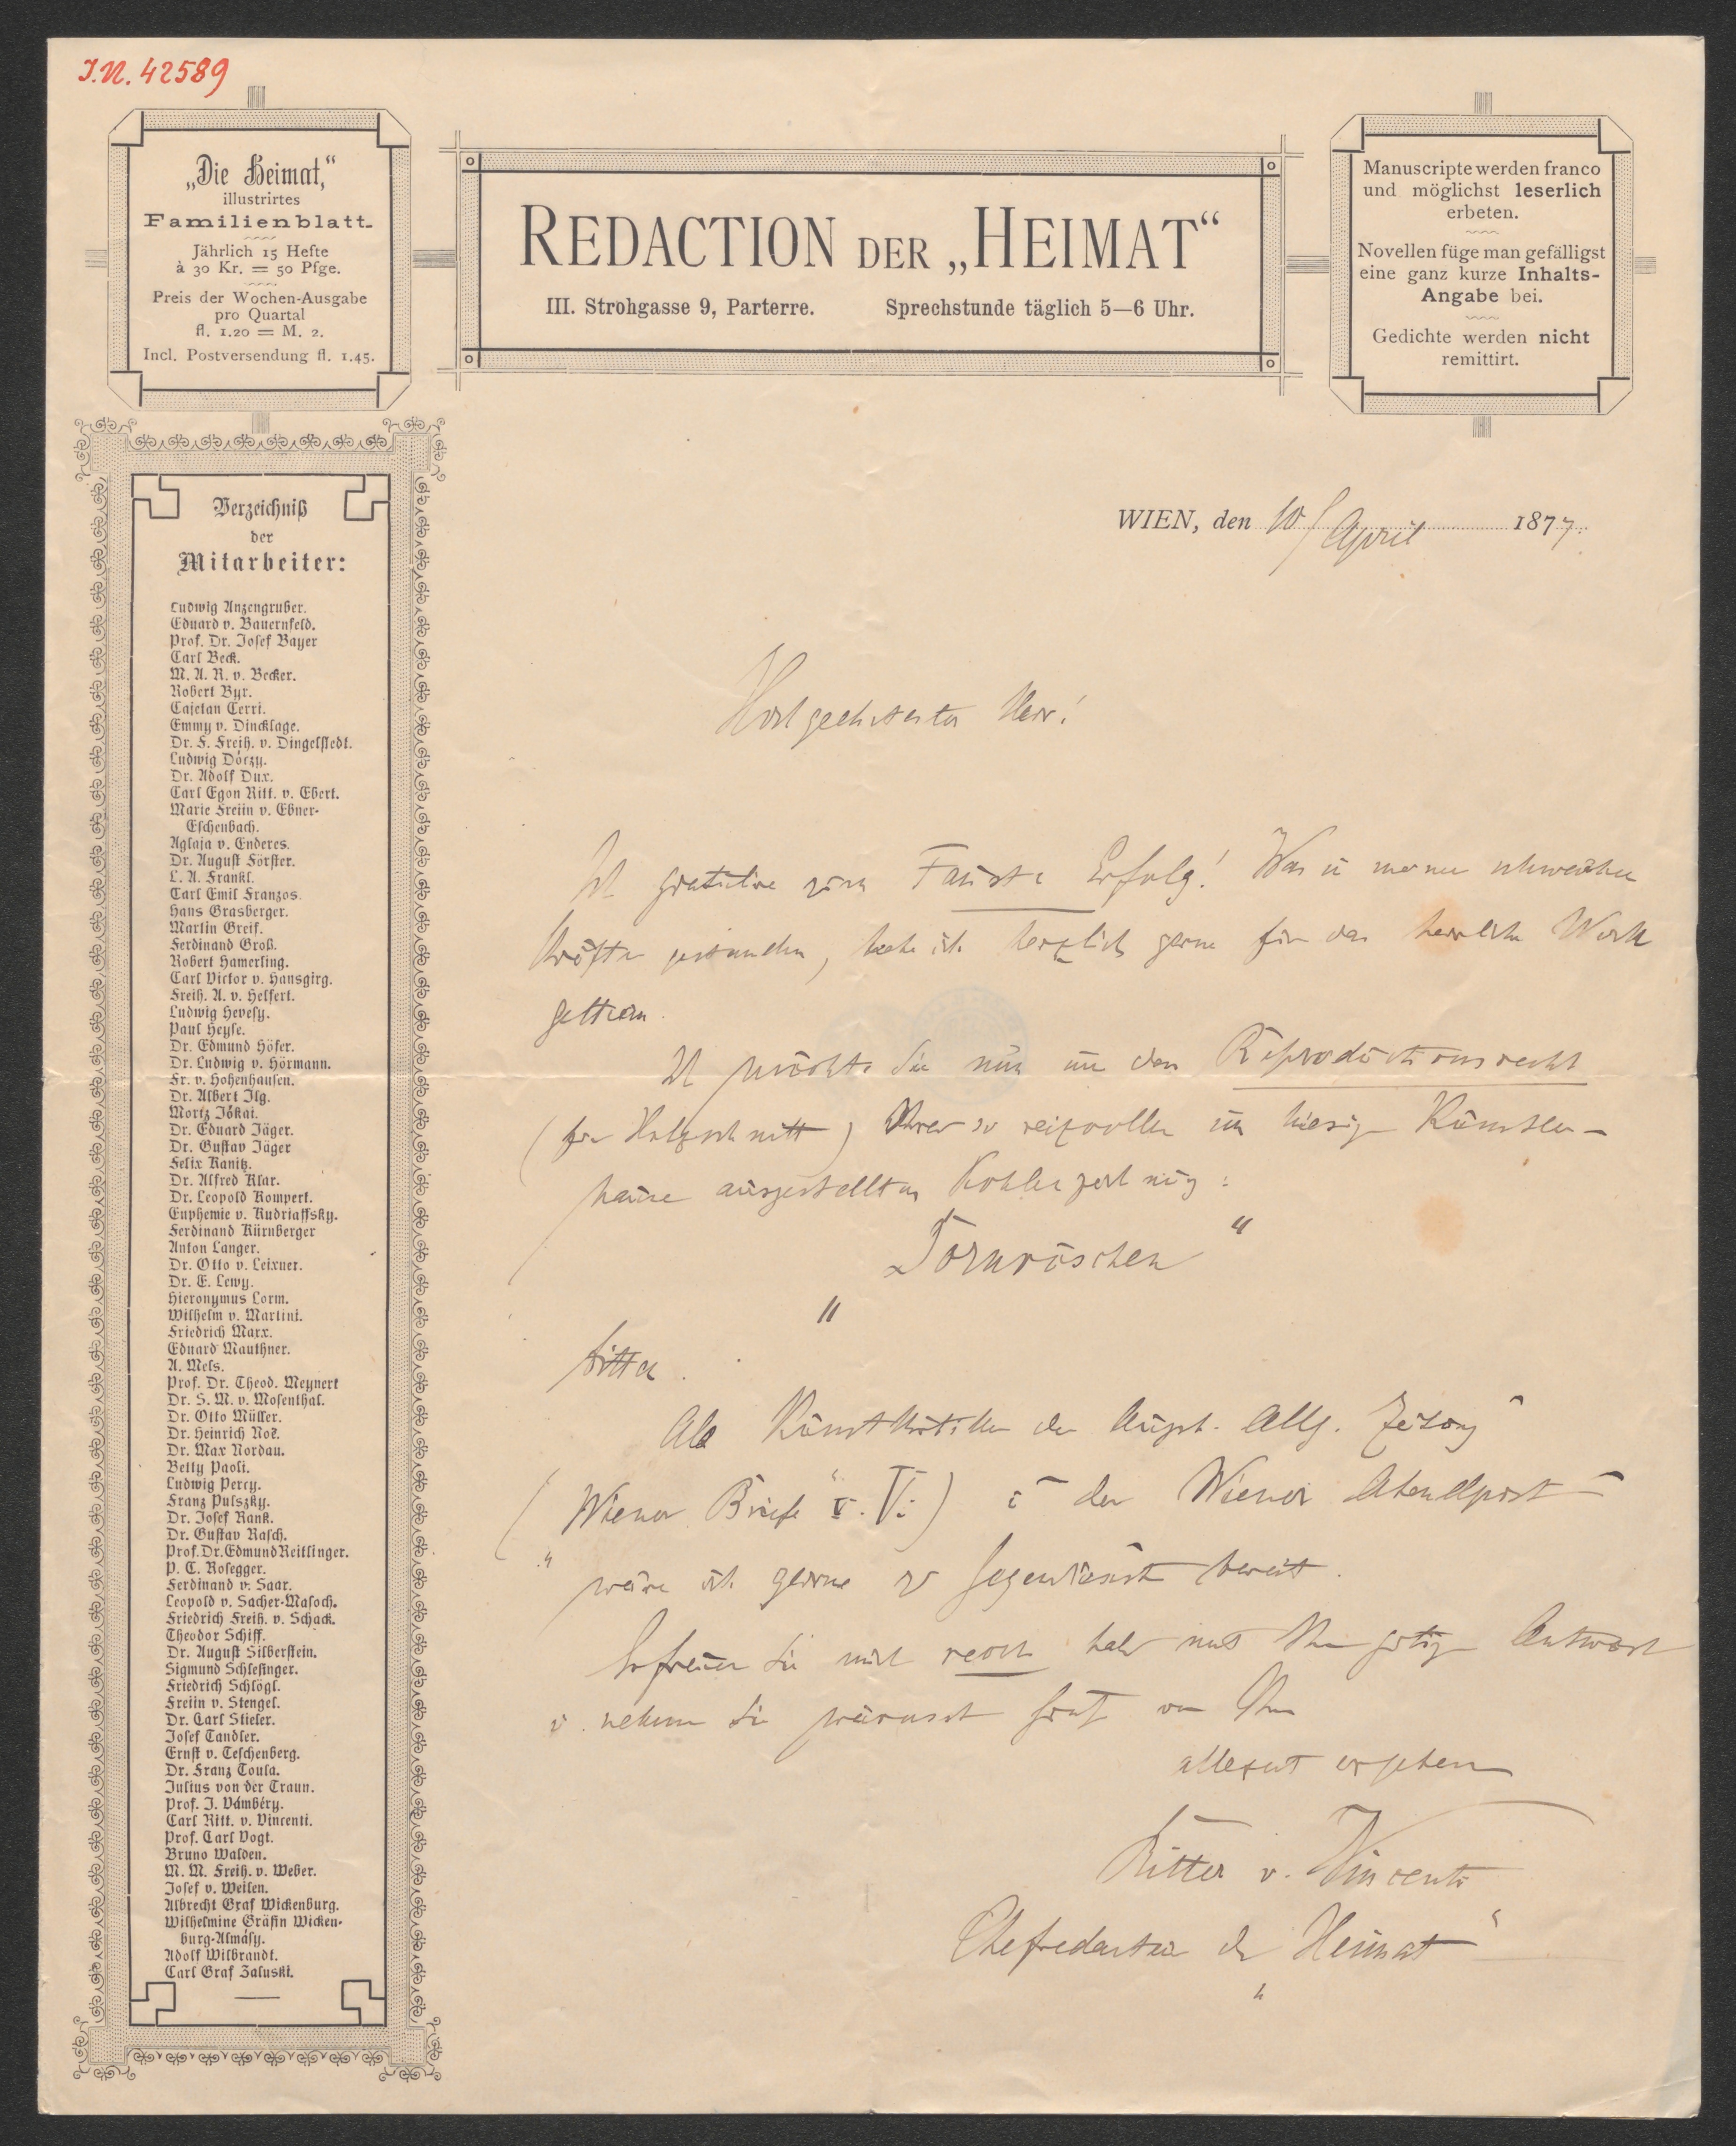 I.N. 42589
„Die Heimat,“
illustrirtes
Familienblatt.
Jährlich 15 Hefte
à 30 Kr. = 50 Pfge.
Preis der Wochen-Ausgabe
pro Quartal
fl. 1.20 = M. 2.
Incl. Postversendung fl. 1.45.
REDACTION DER „HEIMAT“
III. Strohgasse 9, Parterre. Sprechstunde täglich 5—6 Uhr.
Manuscripte werden franco
und möglichst leserlich
erbeten.
Novellen füge man gefälligst
eine ganz kurze Inhalts-
Angabe bei.
Gedichte werden nicht
remittirt.
Verzeichniß
der
Mitarbeiter:
Ludwig Anzengruber.
Eduard v. Bauernfeld.
Prof. Dr. Josef Bayer
Carl Beck.
M. A. R. v. Becker.
Robert Byr.
Cajetan Cerri.
Emmy v. Dincklage.
Dr. F. Freih. v. Dingelstedt.
Ludwig Dóczy.
Dr. Adolf Dux.
Carl Egon Ritt. v. Ebert.
Marie Freiin v. Ebner-
Eschenbach.
Aglaja v. Enderes.
Dr. August Förster.
L. A. Frankl.
Carl Emil Franzos.
Hans Grasberger.
Martin Greif.
Ferdinand Groß.
Robert Hamerling.
Carl Victor v. Hansgirg.
Freih. A. v. Helfert.
Ludwig Hevesy.
Paul Heyse.
Dr. Edmund Höfer.
Dr. Ludwig v. Hörmann.
Fr. v. Hohenhausen.
Dr. Albert Ilg.
Moriz Jókai.
Dr. Eduard Jäger.
Dr. Gustav Jäger
Felix Kanitz.
Dr. Alfred Klar.
Dr. Leopold Kompert.
Euphemie v. Kudriaffsky.
Ferdinand Kürnberger
Anton Langer.
Dr. Otto v. Leixner.
Dr. E. Lewy.
Hieronymus Lorm.
Wilhelm v. Martini.
Friedrich Marx.
Eduard Mauthner.
A. Mels.
Prof. Dr. Theod. Meynert
Dr. S. M. v. Mosenthal.
Dr. Otto Müller.
Dr. Heinrich Noë.
Dr. Max Nordau.
Betty Paoli.
Ludwig Percy.
Franz Pulszky.
Dr. Josef Rank.
Dr. Gustav Rasch.
Prof. Dr. Edmund Reitlinger.
P. C. Rosegger.
Ferdinand v. Saar.
Leopold v. Sacher-Masoch.
Friedrich Freih. v. Schack.
Theodor Schiff.
Dr. August Silberstein.
Sigmund Schlesinger.
Friedrich Schlögl.
Freiin v. Stengel.
Dr. Carl Stieler.
Josef Tandler.
Ernst v. Teschenberg.
Dr. Franz Toula.
Julius von der Traun.
Prof. J. Vámbéry.
Carl Ritt. v. Vincenti.
Prof. Carl Vogt.
Bruno Walden.
M. M. Freih. v. Weber.
Josef v. Weilen.
Albrecht Graf Wickenburg.
Wilhelmine Gräfin Wicken-
burg-Almásy.
Adolf Wilbrandt.
Carl Graf Zaluski.
WIEN, den 10/ April 1877.
Hochgeehrtester Herr!
Ich gratulire zum Faust-Erfolg! Was in meinen schwachen
Kräften gestanden, habe ich herzlich gerne für das herrliche Werk
gethan.
Ich möchte Sie nun um das Reproductionsrecht
(für Holzschnitt) Ihrer so reizvollen im hiesigen Künstler-
hause ausgestellten Kohlezeichnung:
„Dornröschen“
bitten.
Als Kunstkritiker der Augsb. Allg. Zeitung
(„Wiener Briefe“ v. V.) u. der Wiener Abendpost
wäre ich gerne zu Gegendienst bereit.
Erfreuen Sie mich recht bald mit Ihrer gütigen Antwort
u. nehmen Sie wärmsten Gruß von Ihrem
allezeit ergebenen
Ritter v. Vincenti
Chefredacteur der „Heimat“